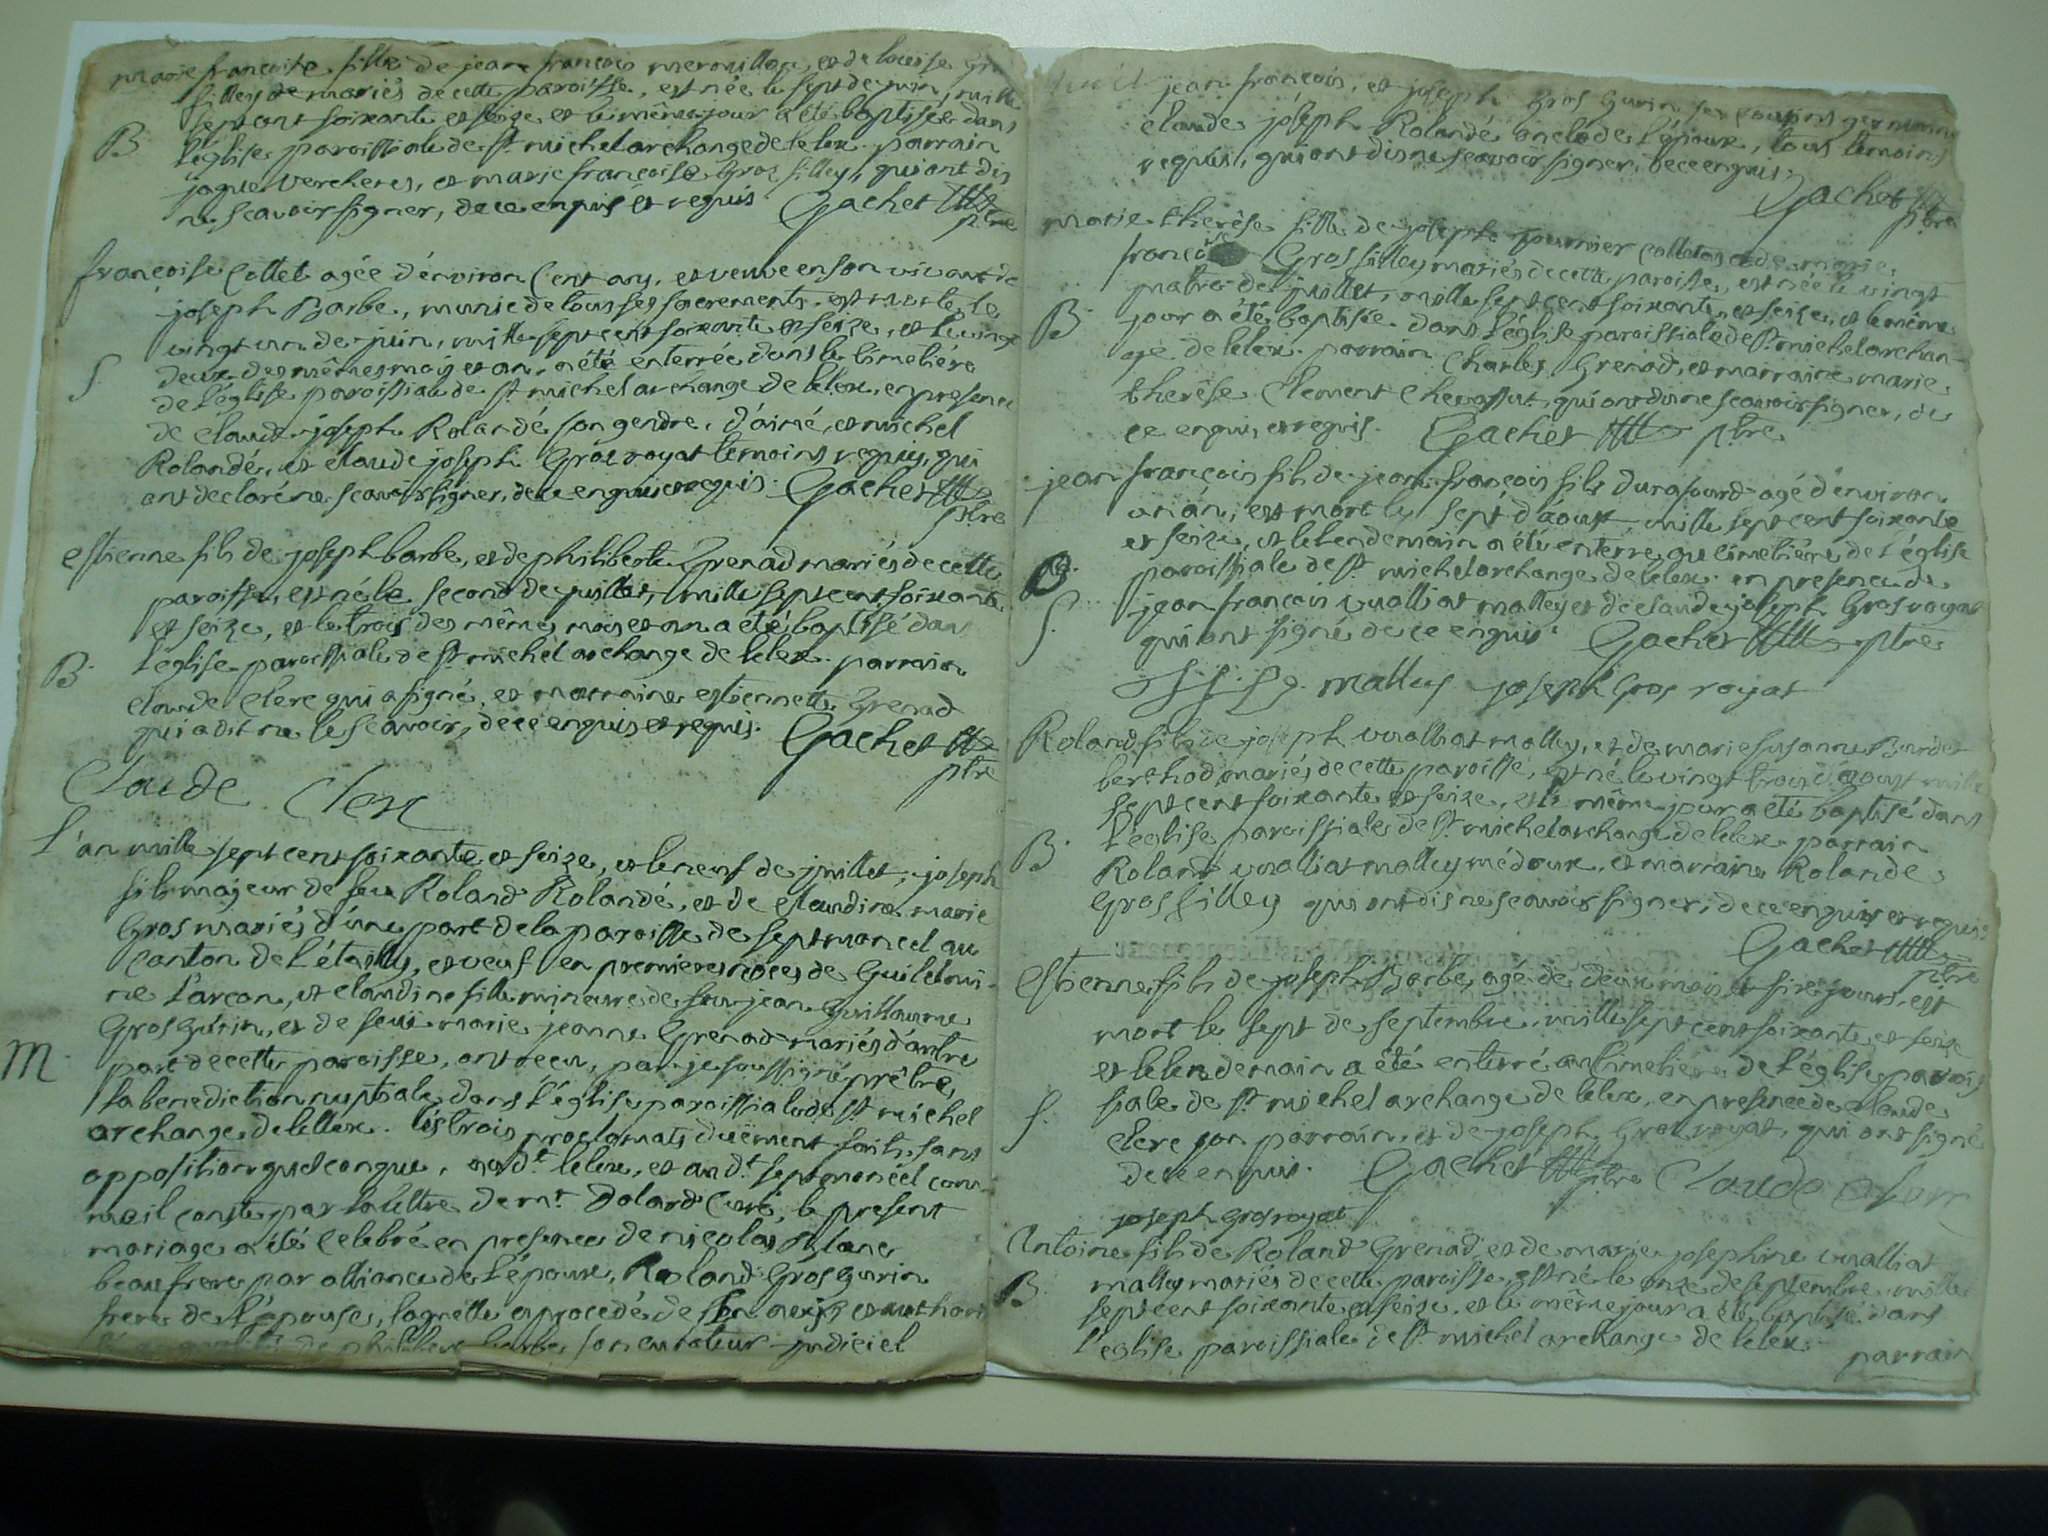 marie francoise fille de jean francois mermillon, et de louise gros
filley mariés de cette paroisse, est née le sept de juin, mille
sept cent soixante et seize et le même jour a été baptisée dans
B. l'église paroissiale de st michel archange de lelex. parrain
jaque vercheres, et marie francoise gros filley, qui ont dis
ne scavoir signer, de ce enquis et requis. Gachet
ptre
francoise Collet agée d'environ Cent ans, et veuve en son vivant de
joseph Barbe, munie de tous ses sacrements, est morte le
vingt un de juin, mille sept cent soixante et seize, et le vingt
deux des mêmes mois et an, a été énterrée dans le Cimetière
S. de l'église paroissiale de st michel archange de lelex, en presence
de Claude joseph Rolandé son gendre, d'aimé, et michel
Rolandé, et claude joseph Gros royat temoins requis, qui
ont declaré ne scavoir signer, de ce enquis et requis. Gachet
ptre
estienne fils de joseph barbe, et de philiberte Grenad mariés de cette
paroisse, est né le second de juillet, mille sept cent soixante
et seize, et le trois des mêmes mois et an a été baptisé dans
B. l'église paroissiale de st michel archange de lelex. parrain
claude Clerc qui a signé, et marraine estiennette Grenad
qui a dit ne le scavoir, de ce enquis et requis. Gachet
ptre
Claude Clerc
L'an mille sept cent soixante et seize, et le neuf de juillet, joseph
fils majeur de feu Roland Rolandé, et de Claudine marie
Gros mariés d'une part de la paroisse de septmoncel au
Canton de l'étailly, et veuf en premieres noces de Guillelmi-
ne Larcon, et claudine fille mineure de feu jean Guillaume
Gros Gurin, et de feue marie jeanne Grenad mariés d'autre
M. part de cette paroisse, ont recu, par je soussigné prêtre,
la benediction nuptiale dans l'église paroissiale de st michel
archange de lellex. les trois proclamats duëment faits, sans
opposition quelconque, au dt lelex, et au dt septmoncel com-
me il conste par la lettre de mr Dolard Curé, le present
mariage a été Celebré en presence de nicolas Blanc
beau frere par alliance de l'époux, Roland Gros Gurin
frere de l'épouse, laquelle a procedé de son avis et authori
té de philibert barbe son curateur judiciel
jean francois, et joseph Gros Gurin ses cousins germains
claude joseph Rolandé oncle de l'époux, tous temoins
requis, qui ont dis ne scavoir signer, de ce enquis.
Gachet
ptre
marie therêse fille de joseph fournier colleton et de marie
francoise Gros filley mariés de cette paroisse, est née le vingt
quatre de juillet, mille sept cent soixante, et seize, et le même
B. jour a été baptisée dans l'église paroissiale de st michel archan-
ge de lelex. parrain Charles Grenad, et marraine marie
therêse Clement Chevassut, qui ont dis ne scavoir signer, de
ce enquis, et requis. Gachet ptre
jean francois fils de jean francois fils durafourd agé d'environ
un an, est mort le sept d'aoust mille sept cent soixante
et seize, et le lendemain a été enterré au cimetière de l'église
paroissiale de st michel archange de lelex. en presence de
S. jean francois vualliat malley et de claude joseph Gros royat
qui ont signé de ce enquis. Gachet ptre
malley joseph Gros royat
Roland fils de joseph vualliat malley, et de marie susanne Burdet
berthod mariés de cette paroisse, est né le vingt trois d'aoust mille
sept cent soixante et seize, et le même jour a été baptisé dans
B. l'église paroissiale de st michel archange de lelex. parrain
Roland vualliat malley médoux, et marraine Rolande
Gros filley qui ont dis ne scavoir signer, de ce enquis et requis.
Gachet
ptre
estienne fils de joseph Barbe, agé de deux mois et six jours, est
mort le sept de septembre, mille sept cent soixante, et seize
et le lendemain a été enterré au Cimetière de l'église parois
S. siale de st michel archange de lelex, en presence de claude
Clerc son parrain, et de joseph Gros royat, qui ont signé
de ce enquis. Gachet ptre Claude Clerc
joseph Gros royat
Antoine fils de Roland Grenad, et de marie josephine vualliat
B. malley mariés de cette paroisse, est né le onze de septembre, mille
sept cent soixante et seize, et le même jour a été baptisé dans
l'église paroissiale de st michel archange de lelex. parrain